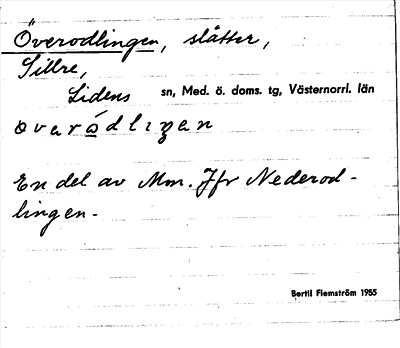 Överodlingen, slåtter,
Sillre,
Lidens sn, Med. ö. doms. tg, Västernorrl. län
En del av Mon. Jfr Nederod-
lingen.
Bertil Flemström 1955